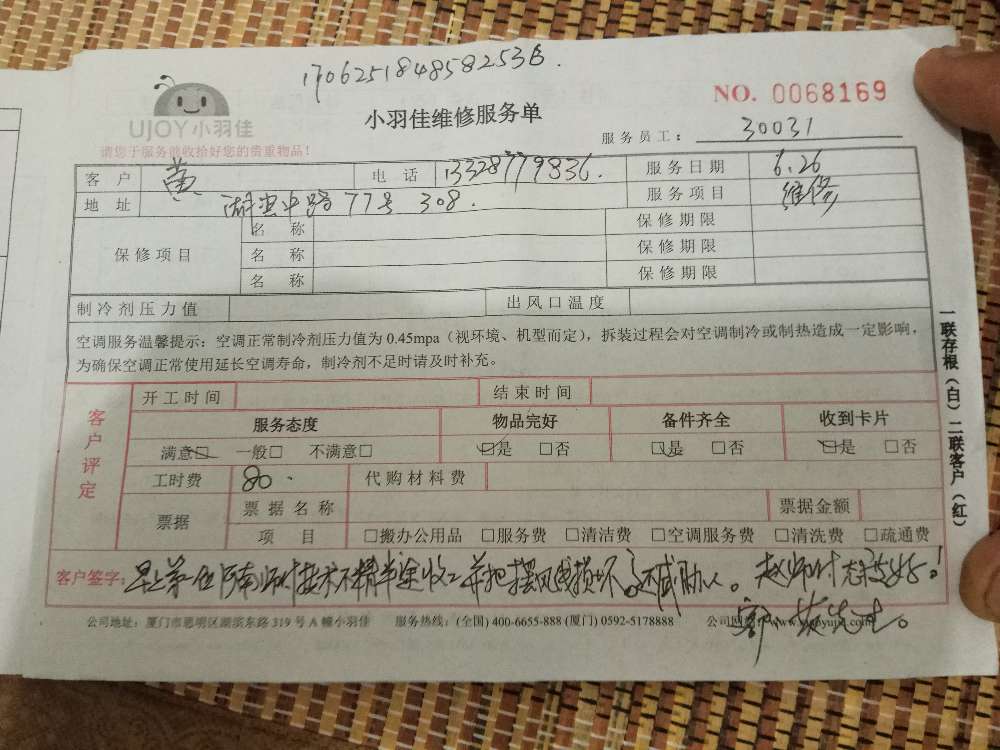 1706251848582536.
NO. 0068169
UJOY小羽佳
小羽佳维修服务单
服务员工： 30031
请您于服务前收拾好您的贵重物品！
客户 黄 电话 13328779836. 服务日期 6.26
地址 中路77号 308. 服务项目 维修
保修项目 名称 保修期限
名称 保修期限
名称 保修期限
制冷剂压力值 出风口温度
空调服务温馨提示：空调正常制冷剂压力值为 0.45mpa（视环境、机型而定），拆装过程会对空调制冷或制热造成一定影响，
为确保空调正常使用延长空调寿命，制冷剂不足时请及时补充。
一联存根（白）二联客户（红）
客户评定
开工时间 结束时间
服务态度 物品完好 备件齐全 收到卡片
满意□ 一般□ 不满意□ □是 □否 □是 □否 □是 □否
工时费 80. 代购材料费
票据 票据名称 票据金额
项目 □搬办公用品 □服务费 □清洁费 □空调服务费 □清洗费 □疏通费
客户签字：早上第一位河南师付技术不精半途收工并把摆风线损坏 还威胁人。赵师付态度好！
客户：黄先生。
公司地址：厦门市思明区湖滨东路 319 号 A 幢小羽佳 服务热线：(全国) 400-6655-888 (厦门) 0592-5178888 公司网